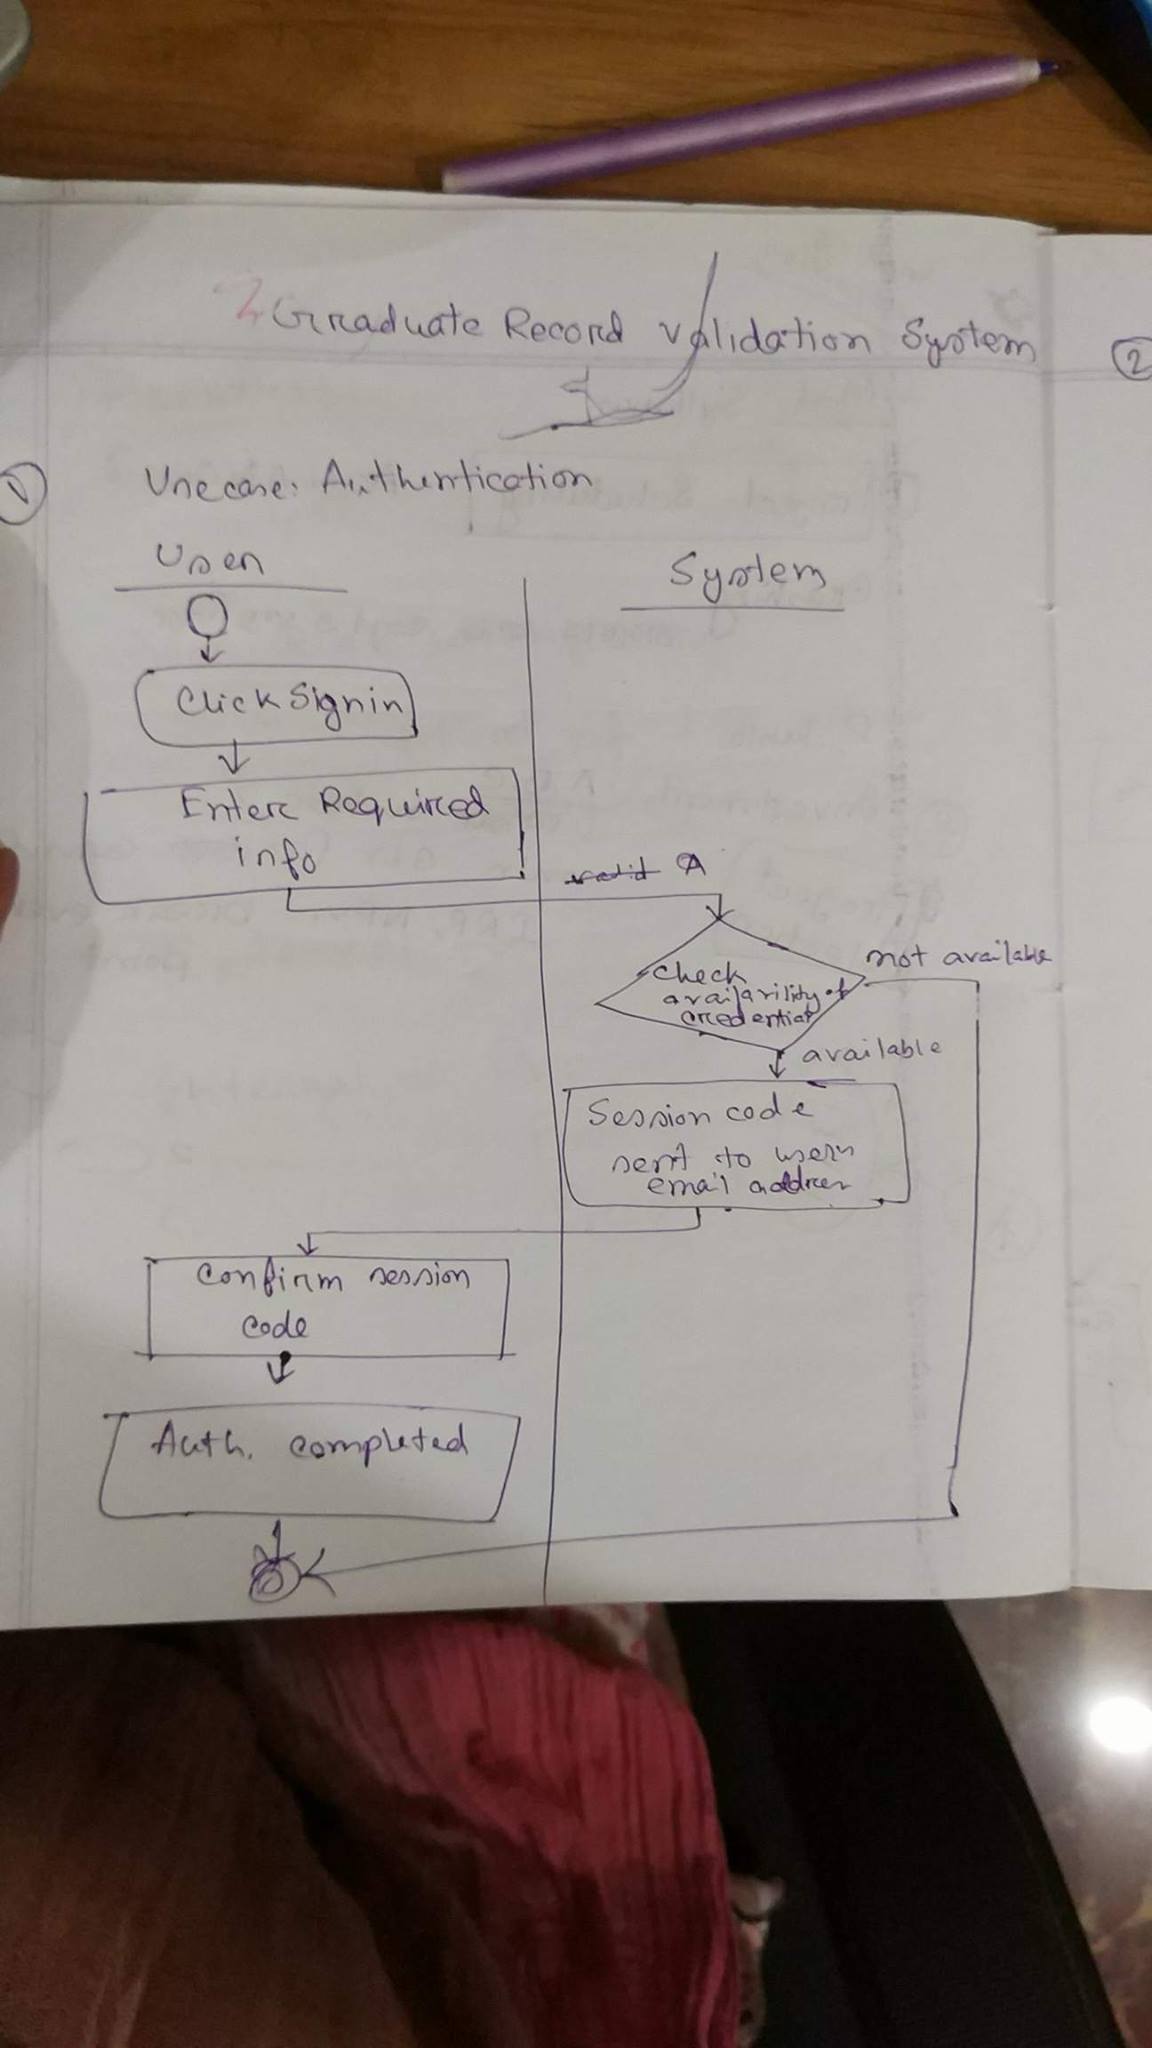 Graduate Record Validation System
2
1
Usecase: Authentication
User
System
Click Signin
Enter Required
info
valid A
check
availavility of
credential
not available
available
Session code
sent to users
email address
Confirm session
code
Auth. completed